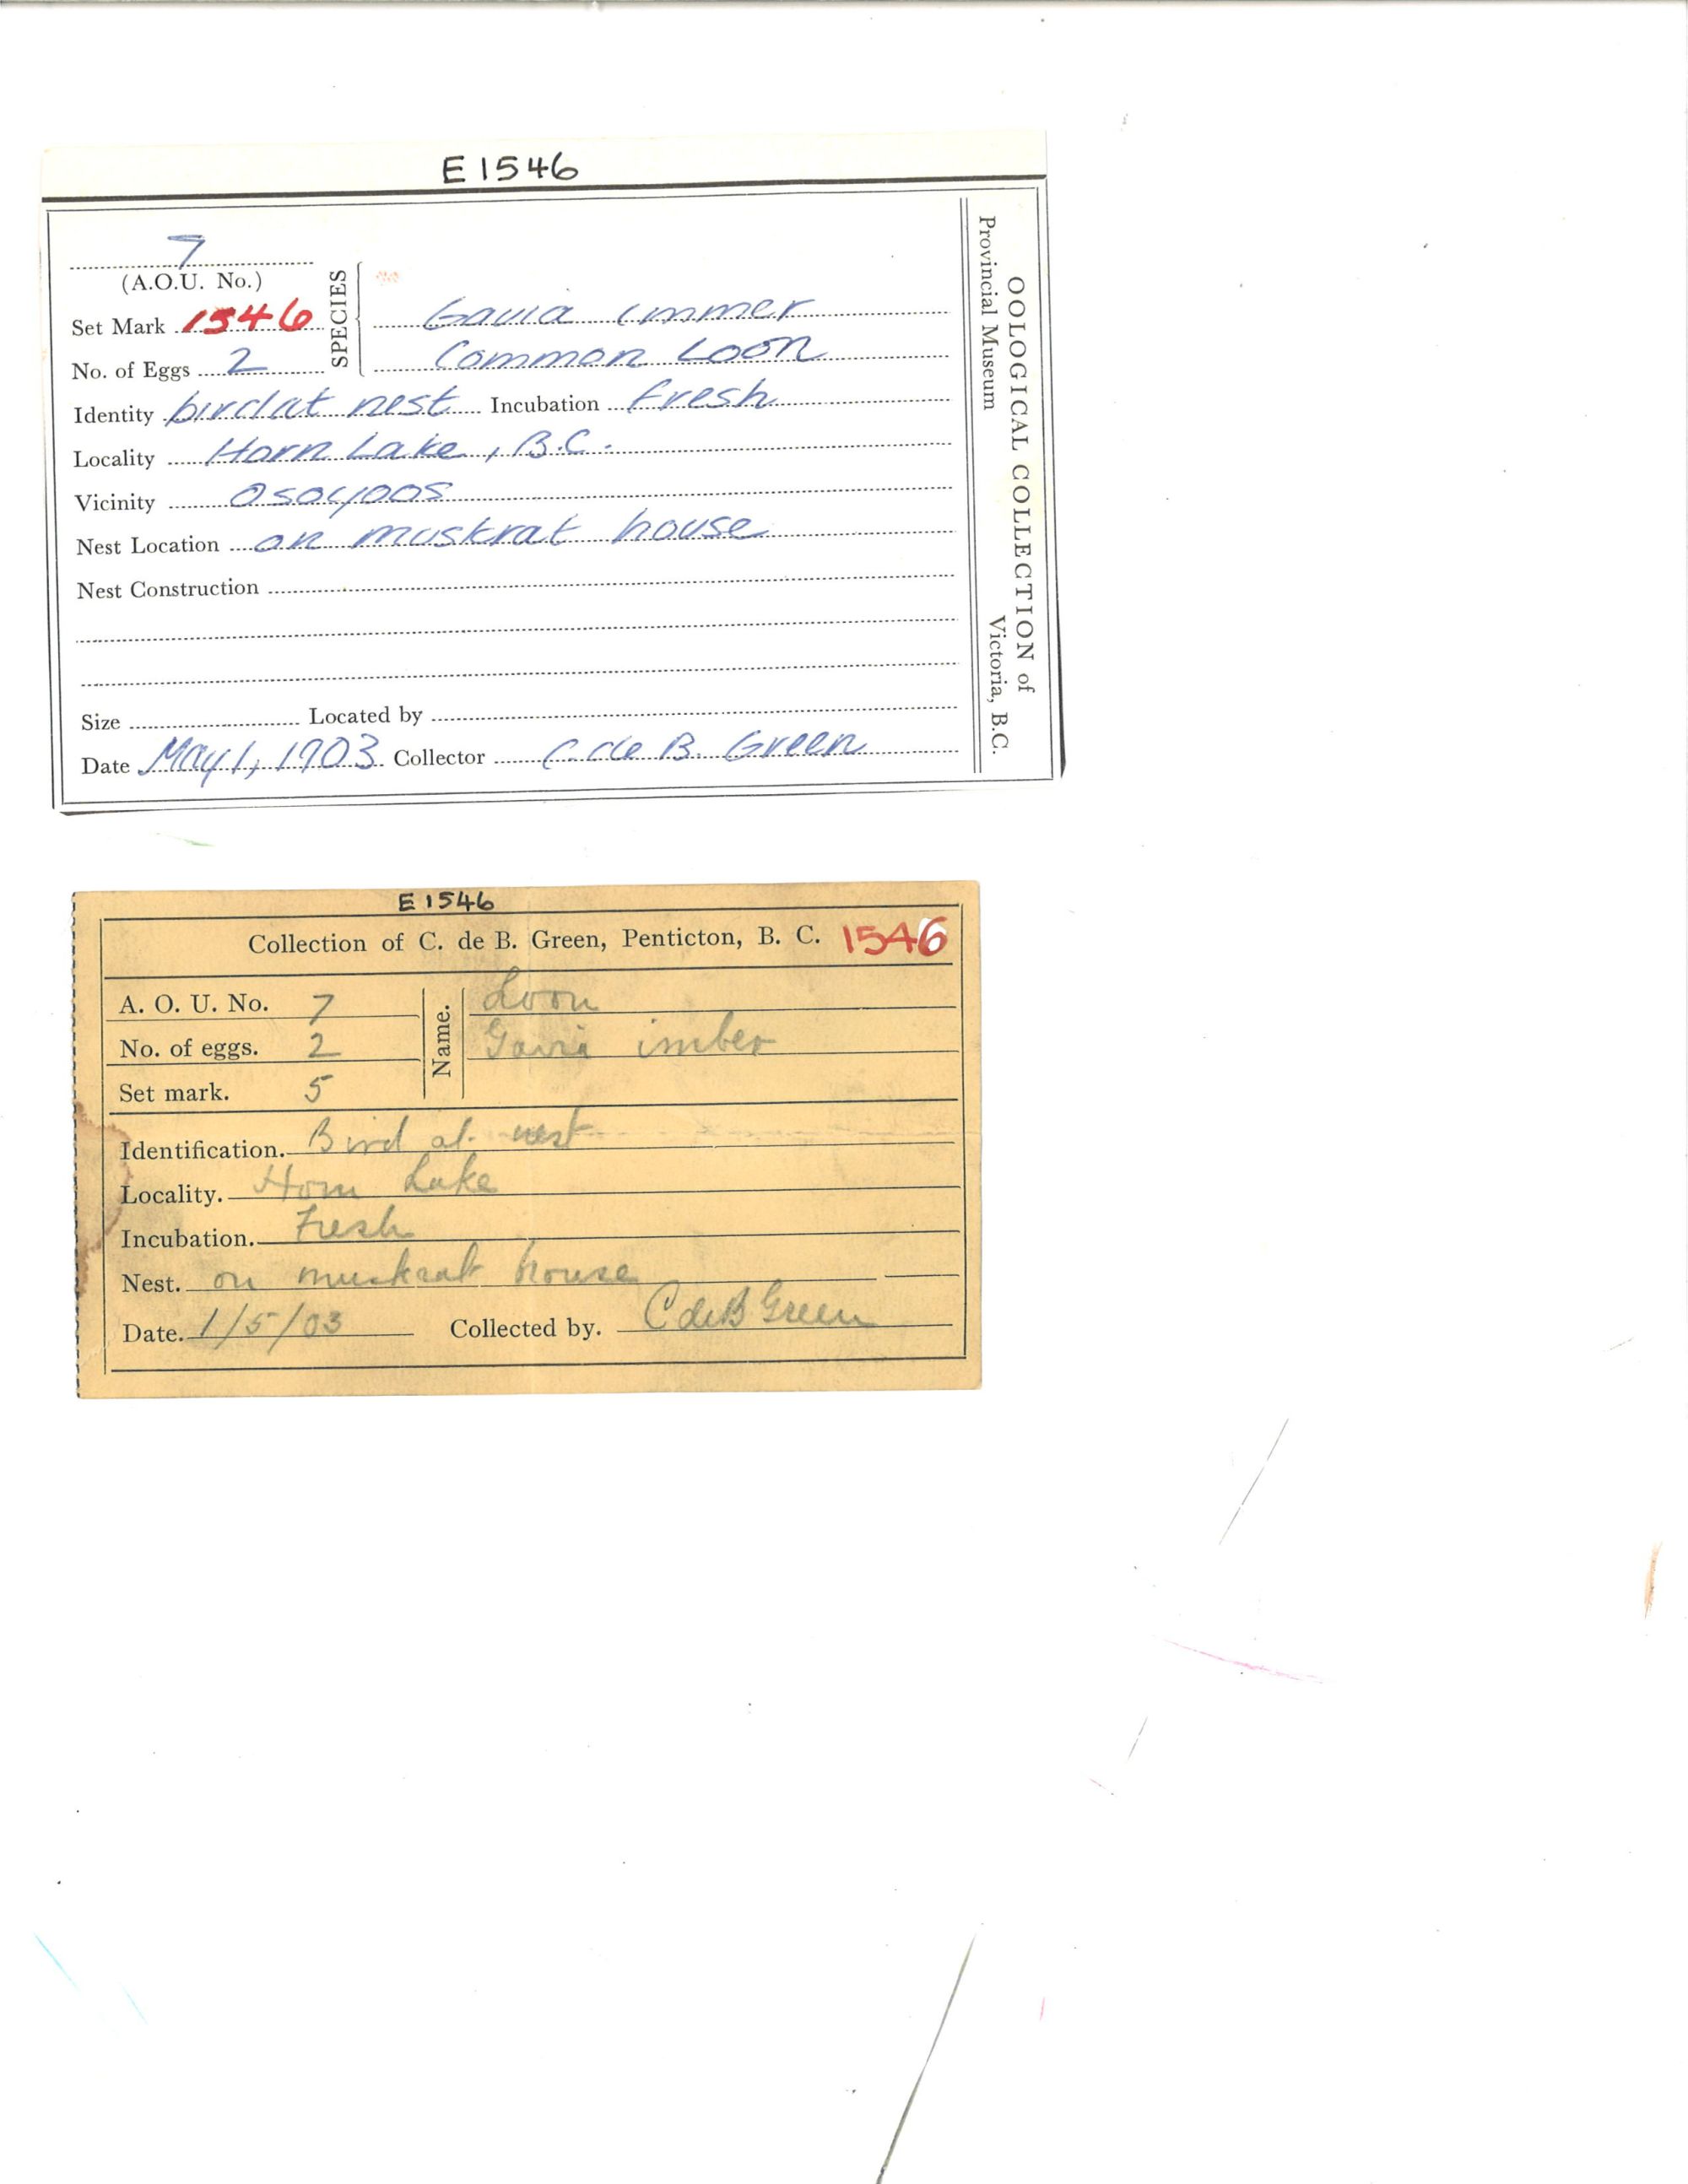 E 1546
7
(A.O.U. No.)
Set Mark 1546
No. of Eggs 2
SPECIES
Gavia immer
Common Loon
Identity bird at nest Incubation fresh
Locality Horn Lake, B.C.
Vicinity Osoyoos
Nest Location on muskrat house
Nest Construction
Size Located by
Date May 1, 1903 Collector C. de B. Green
OOLOGICAL COLLECTION of
Provincial Museum Victoria, B.C.
E 1546
Collection of C. de B. Green, Penticton, B. C. 1546
A. O. U. No. 7
No. of eggs. 2
Set mark. 5
Name.
Loon
Gavia imber
Identification. Bird at nest
Locality. Horn Lake
Incubation. Fresh
Nest. on muskrat house
Date. 1/5/03 Collected by. C de B Green